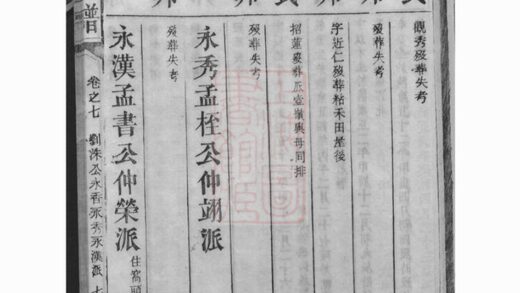 觀秀歿葬失考
歿葬失考
字近仁歿葬粘禾田屋後
招蓮歿葬瓜壺嶺與母同排
歿葬失考
永秀孟桎公仲翊派
歿葬失考
永漢孟書公仲榮派
住窩頭
譜
卷之七
劉洙公永香永秀永漢派